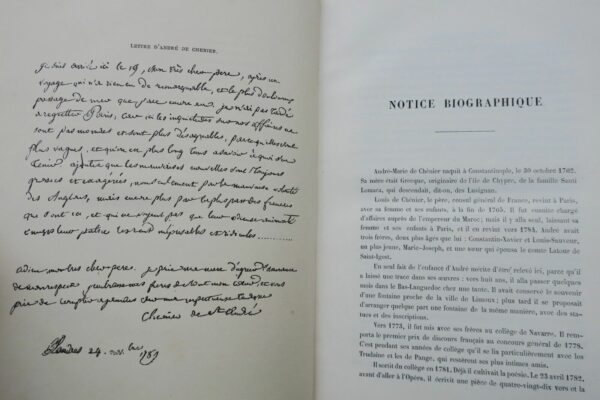 LETTRE D'ANDRÉ DE CHÉNIER.
Je suis arrivé ici le 19, mon très cher père, après un
voyage qui n'a rien eu de remarquable, et le plus
passage de mer que j'aie encore eu. je n'ai pas tardé
à regretter Paris; car ici les inquiétudes sur nos affaires ne
sont pas moindres et sont plus désagréables, parce qu'elles sont
plus vagues, et qu'on est plus long tems à savoir à quoi s'en
tenir. ajoutez que les mauvaises nouvelles sont toujours
grossies et exagérées, non seulement par la mauvaise volonté
des Anglais, mais encore plus par la plus part des français
que sont ici, et qui ne voyent pas que leur
contre leur patrie les rend méprisables et ridicules
adieu mon très cher père. je vous prie
j'embrasse mes frères de tout mon cœur et vous
prie de
Chénier de St André
Londres 24. 9bre 1789
NOTICE BIOGRAPHIQUE
André-Marie de Chénier naquit à Constantinople, le 30 octobre 1762.
Sa mère était Grecque, originaire de l'île de Chypre, de la famille Santi
Lomaca, qui descendait, dit-on, des Lusignan.
Louis de Chénier, le père, consul général de France, revint à Paris,
avec sa femme et ses enfants, à la fin de 1765. Il fut ensuite chargé
d'affaires auprès de l'empereur du Maroc; mais il y alla seul, laissant sa
femme et ses enfants à Paris, et il en revint vers 1784. André avait
trois frères, deux plus âgés que lui : Constantin-Xavier et Louis-Sauveur,
un plus jeune, Marie-Joseph, et une sœur qui épousa le comte Latour de
Saint-Igest.
Un seul fait de l'enfance d'André mérite d'être relevé ici, parce qu'il
a laissé une trace dans ses œuvres : vers huit ans, il alla passer quelques
mois dans le Bas-Languedoc chez une tante. Il avait conservé le souvenir
d'une fontaine proche de la ville de Limoux; plus tard il se proposait
d'arranger quelque part une fontaine de la même manière, avec des sta-
tues et des inscriptions.
Vers 1773, il fut mis avec ses frères au collège de Navarre. Il rem-
porta le premier prix de discours français au concours général de 1778.
C'est pendant ses années de collège qu'il se lia particulièrement avec les
Trudaine et les de Pange, qui restèrent ses plus intimes amis.
Il sortit du collège en 1781. Déjà il cultivait la poésie. Le 23 avril 1782,
avant d'aller à l'Opéra, il écrivit une pièce de quatre-vingt-dix vers et la